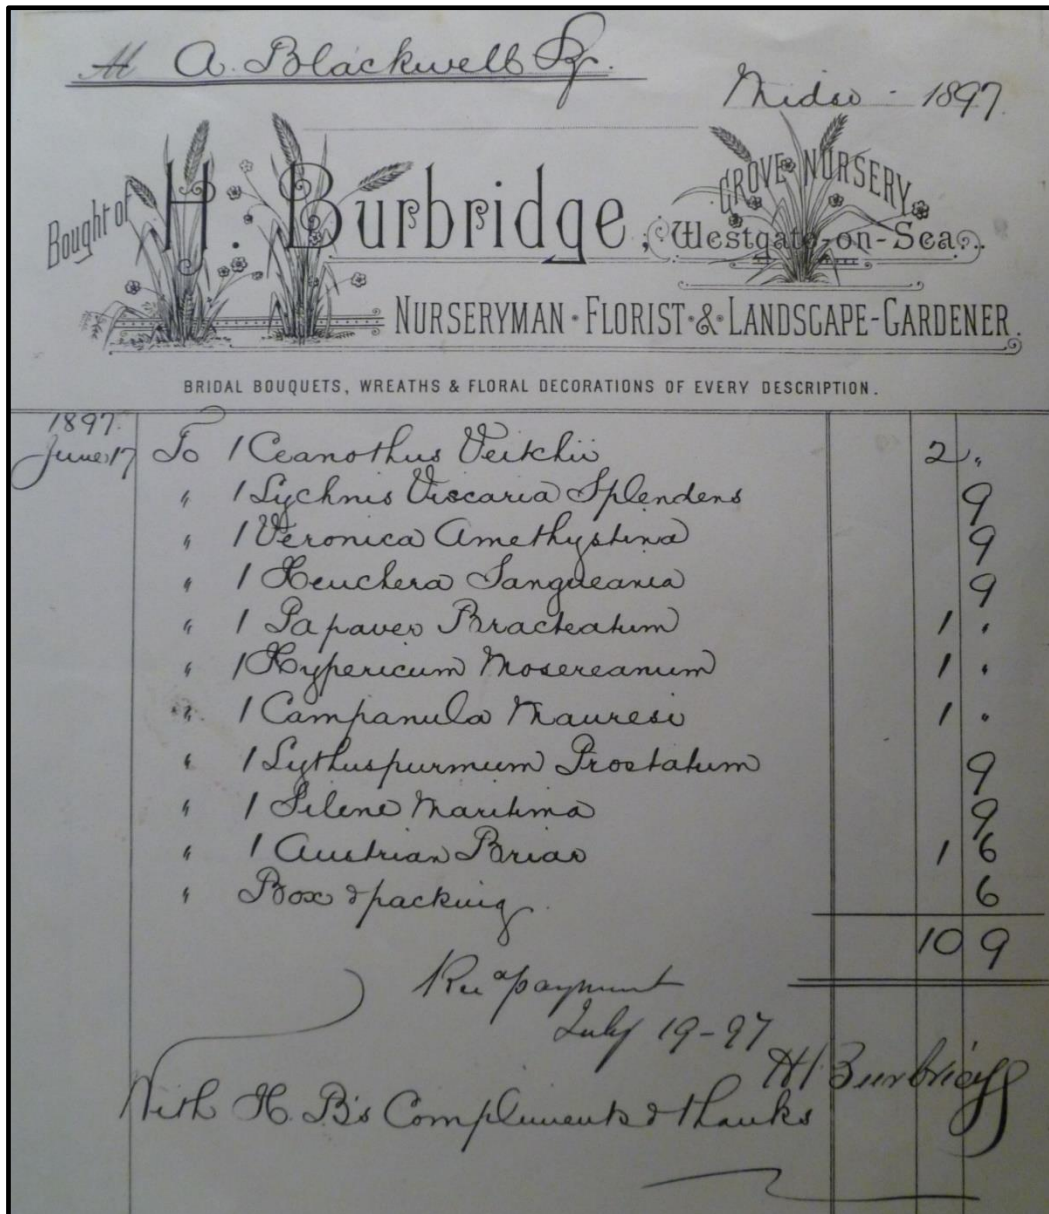 M A. Blackwell Esq.
Midsr - 1897.
Bought of H. Burbridge,
GROVE NURSERY,
Westgate-on-Sea.
NURSERYMAN · FLORIST · & · LANDSCAPE-GARDENER.
BRIDAL BOUQUETS, WREATHS & FLORAL DECORATIONS OF EVERY DESCRIPTION.
1897.
June 17 To 1 Ceanothus Veitchii 2 "
" 1 Lychnis Viscaria Splendens 9
" 1 Veronica Amethystina 9
" 1 Heuchera Sangueania 9
" 1 Papaver Bracteatum 1 "
" 1 Hypericum Mosereanum 1 "
" 1 Campanula Mauresi 1 "
" 1 Lythuspurmum Prostatum 9
" 1 Silene Maritima 9
" 1 Austrian Briar 1 6
" Box & packing 6
10 9
payment
July 19-97
H Burbridge
With H. B's Compliments & thanks